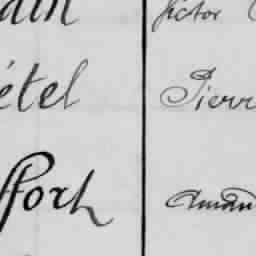 ain Victor
étel Pierr
ffort Aman